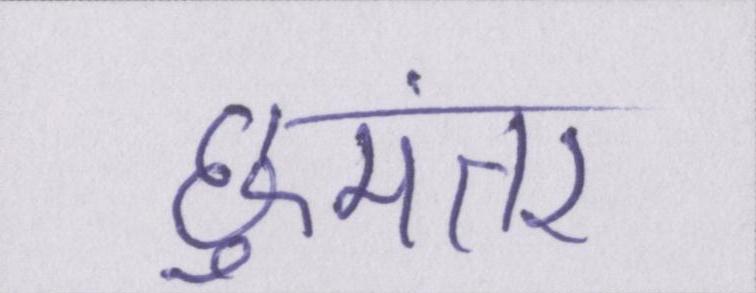 छुमंतर